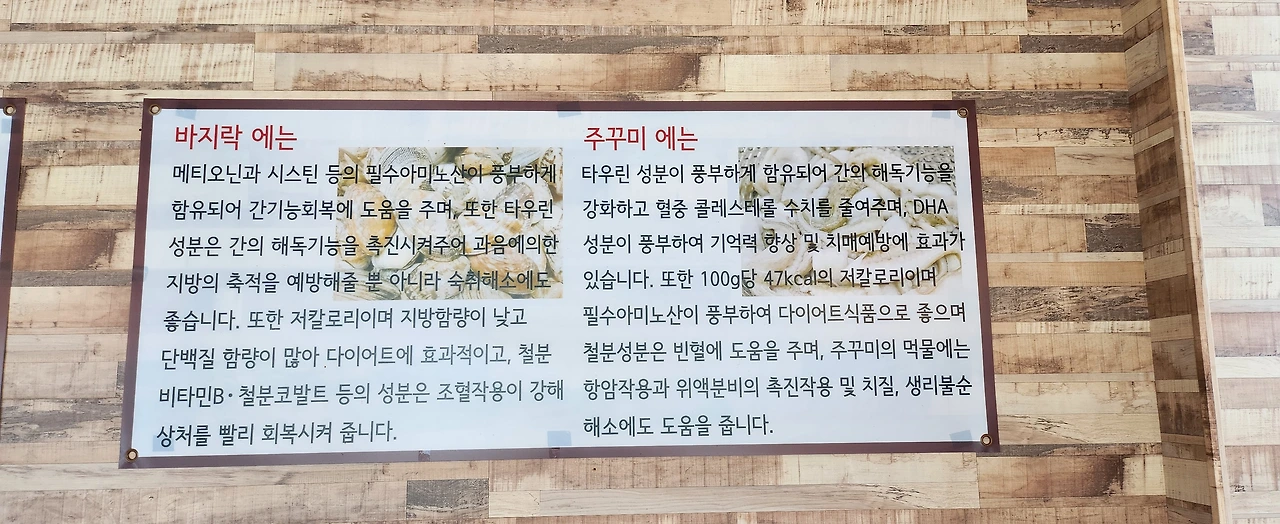 바지락 에는
메티오닌과 시스틴 등의 필수아미노산이 풍부하게
함유되어 간기능회복에 도움을 주며, 또한 타우린
성분은 간의 해독기능을 촉진시켜주어 과음에의한
지방의 축적을 예방해줄 뿐 아니라 숙취해소에도
좋습니다. 또한 저칼로리이며 지방함량이 낮고
단백질 함량이 많아 다이어트에 효과적이고, 철분
비타민B·철분코발트 등의 성분은 조혈작용이 강해
상처를 빨리 회복시켜 줍니다.
주꾸미 에는
타우린 성분이 풍부하게 함유되어 간의 해독기능을
강화하고 혈중 콜레스테롤 수치를 줄여주며, DHA
성분이 풍부하여 기억력 향상 및 치매예방에 효과가
있습니다. 또한 100g당 47kcal의 저칼로리이며
필수아미노산이 풍부하여 다이어트식품으로 좋으며
철분성분은 빈혈에 도움을 주며, 주꾸미의 먹물에는
항암작용과 위액분비의 촉진작용 및 치질, 생리불순
해소에도 도움을 줍니다.